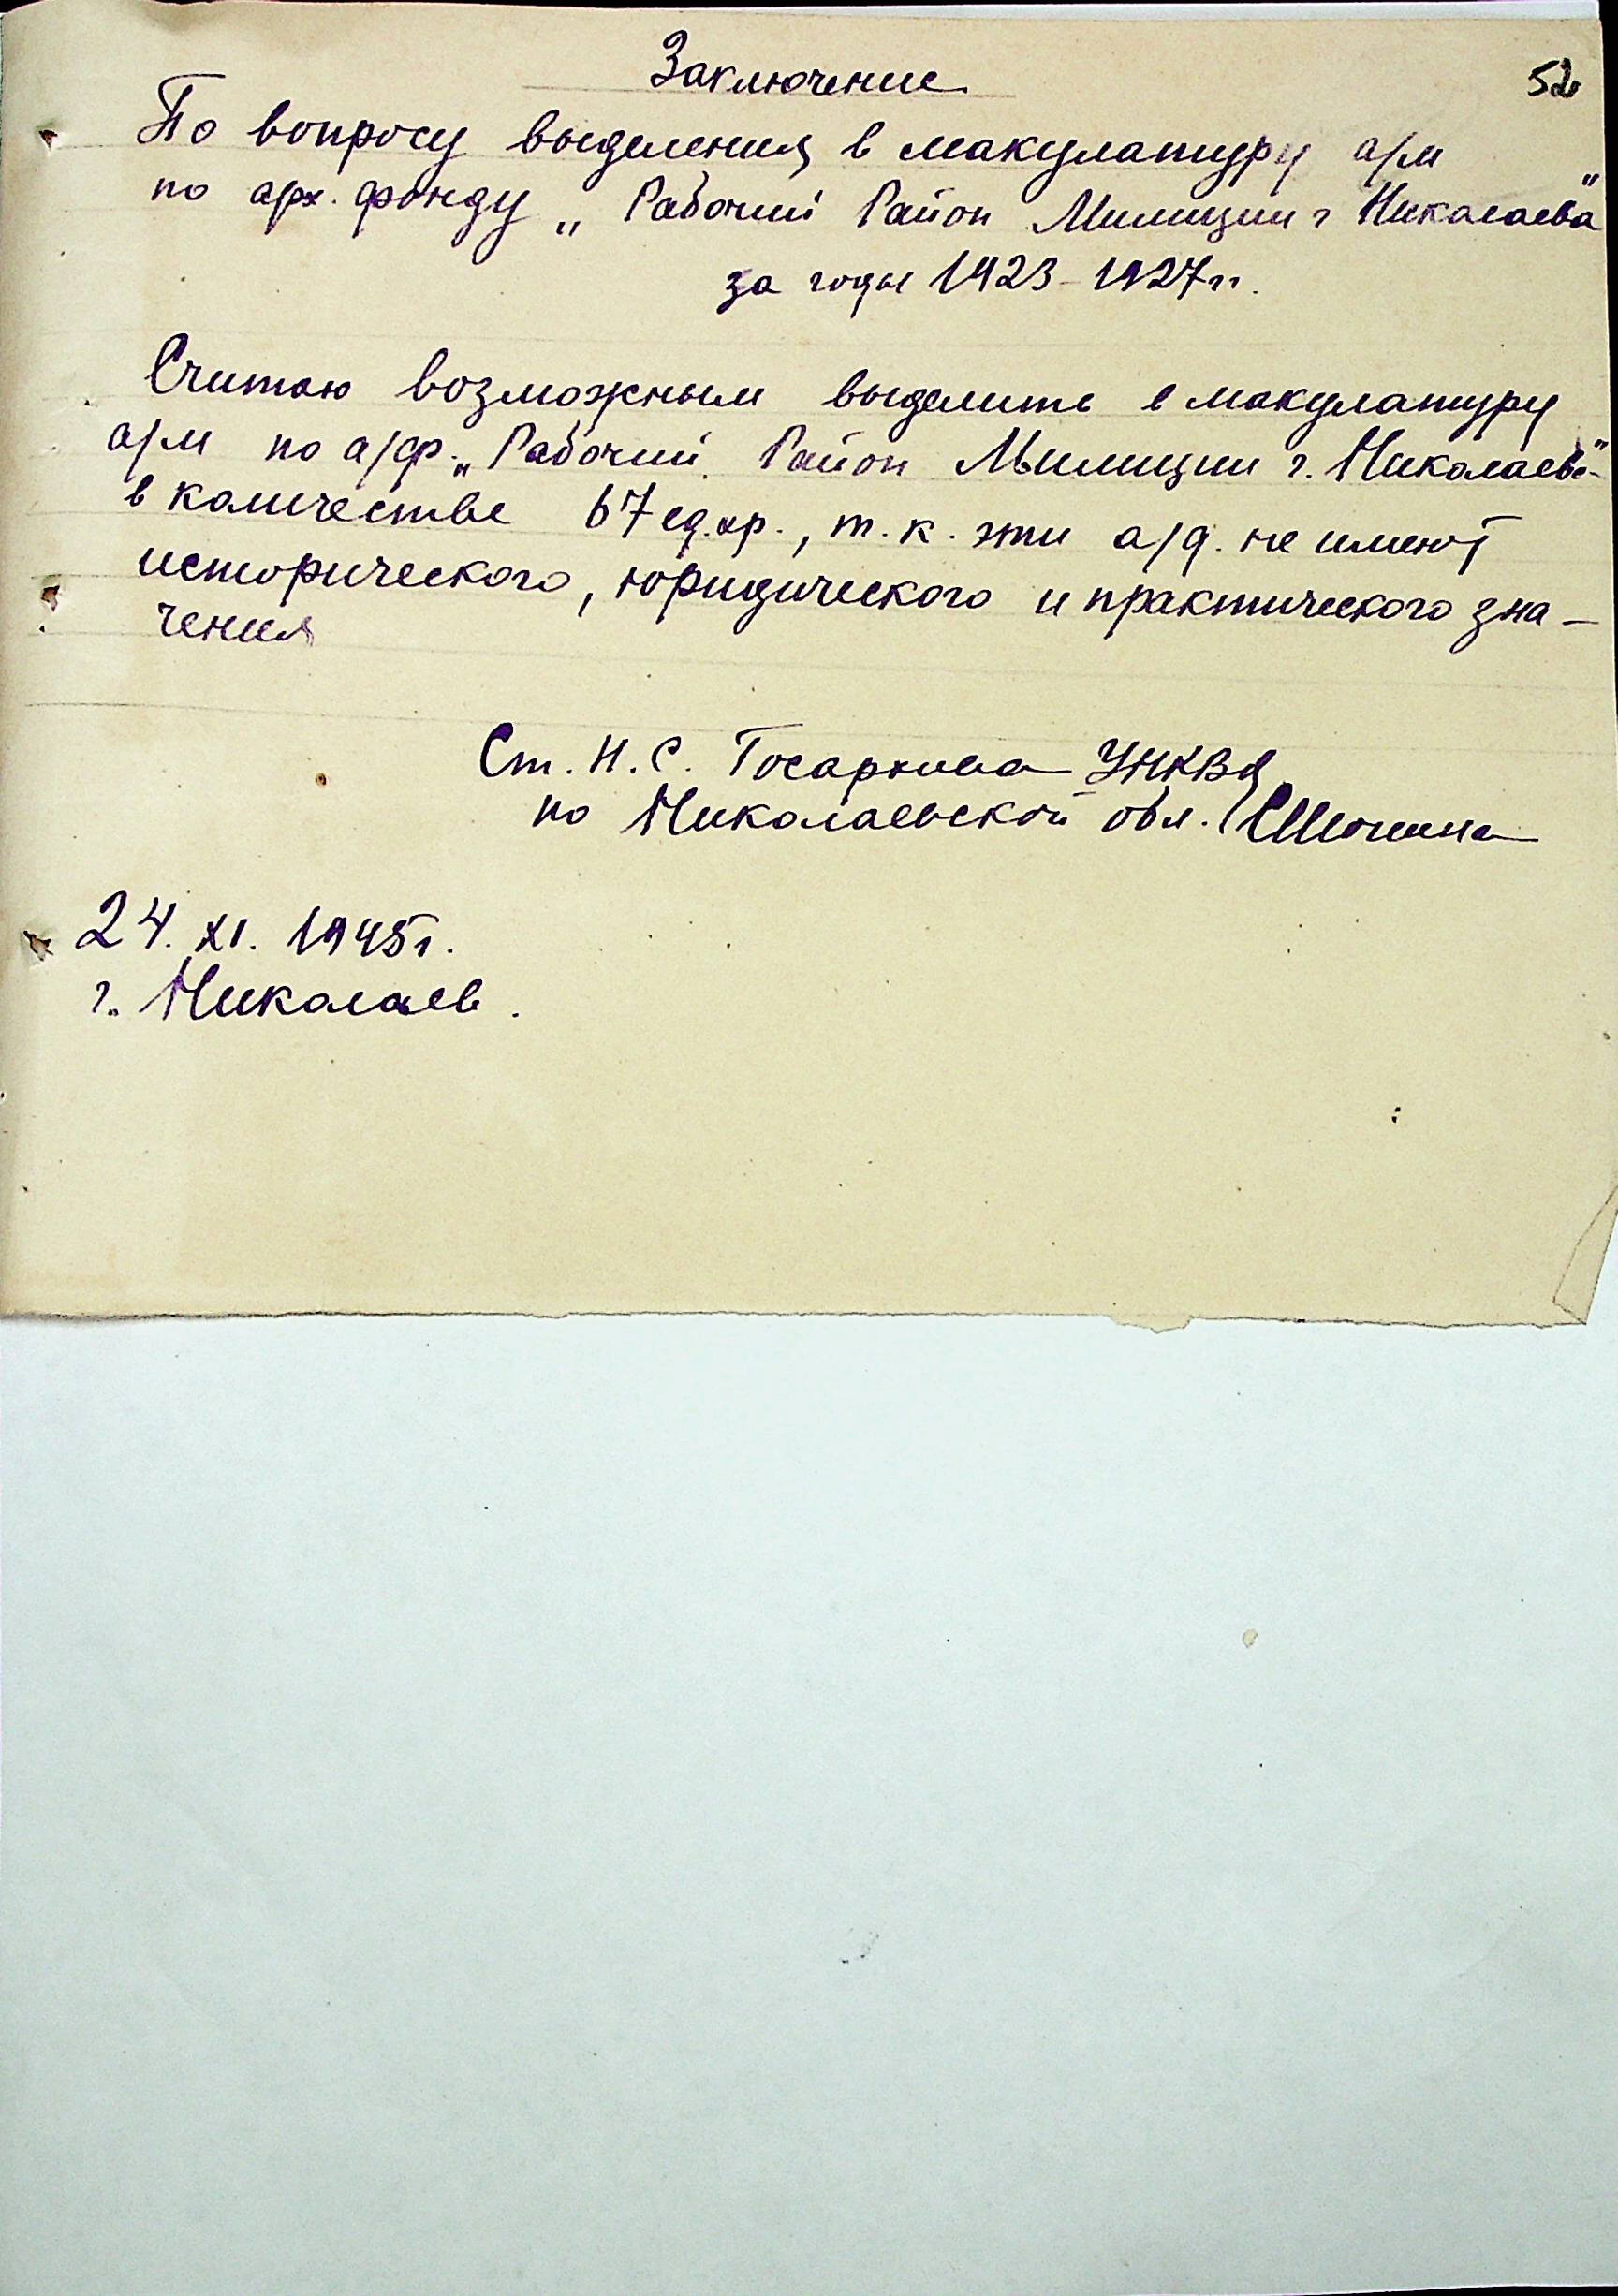 52
Заключение
По вопросу выделения в макулатуру а/м
по арх. фонду „Рабочий Район Милиции г Николаева"
за годы 1923-1927гг.
Считаю возможным выделить в макулатуру
а/м по а/ф. „Рабочий Район Милиции г. Николаева"
в количестве 67 ед.хр., т.к. эти а/д. не имеют
исторического, юридического и практического зна-
чения
Ст. Н.С. Госархива УНКВД
по Николаевской обл.
24. XI. 1945г.
г. Николаев.